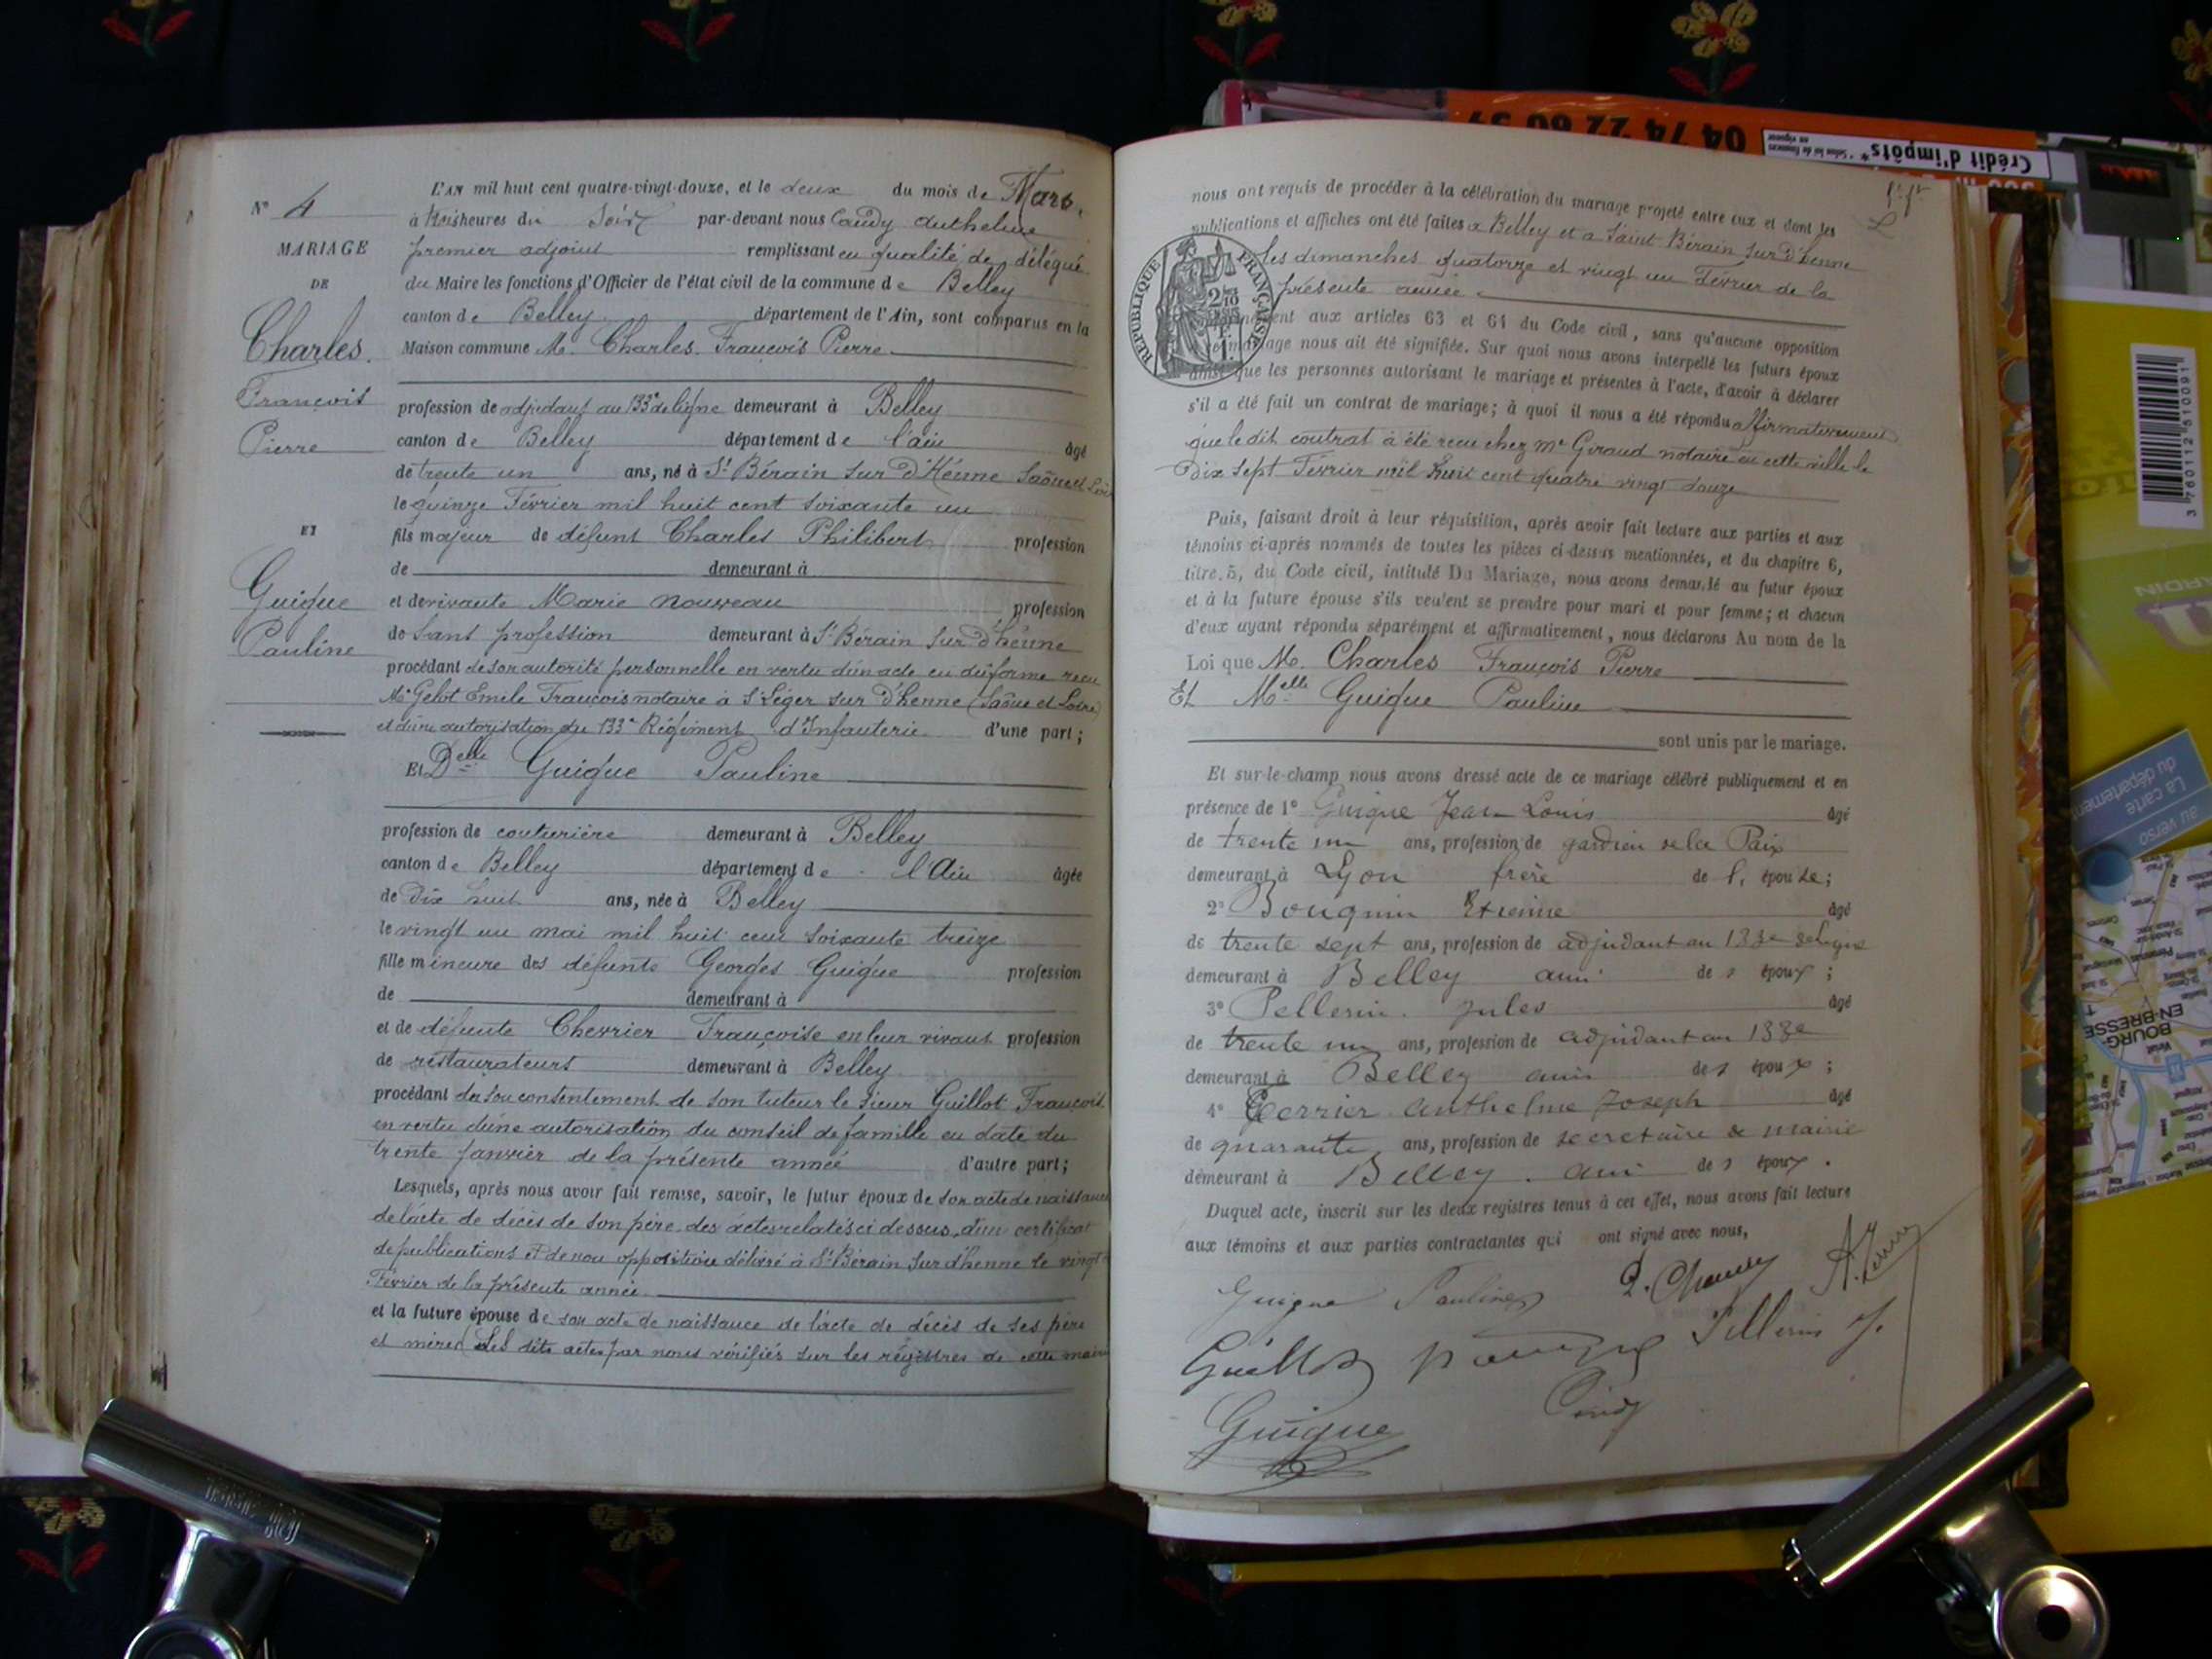 N° 4
MARIAGE
DE
Charles.
François
Pierre
ET
Guigue
Pauline
L'AN mil huit cent quatre-vingt-douze, et le deux du mois de Mars,
à trois heures du Soir par-devant nous Caudy Anthelme
premier adjoint remplissant en qualité de délégué
du Maire les fonctions d'Officier de l'état civil de la commune de Belley
canton de Belley département de l'Ain, sont comparus en la
Maison commune M. Charles François Pierre
profession de adjudant au 133e de ligne demeurant à Belley
canton de Belley département de l'ain âgé
de trente un ans, né à St Bérain sur D'Hénne Saône et Loire
le quinze Février mil huit cent soixante un
fils majeur de défunt Charles Philibert profession
de demeurant à
et de vivante Marie Nouveau profession
de sans profession demeurant à St Bérain sur D'hénne
procédant de son autorité personnelle en vertu d'un acte en dû forme recu
Me Gelot Emile François notaire à St Léger sur D'henne (Saône et Loire)
et d'une autorisation du 133e Régiment d'Infanterie d'une part;
Et Delle Guigue Pauline
profession de couturière demeurant à Belley
canton de Belley département de l'Ain âgée
de Dix huit ans, née à Belley
le vingt un mai mil huit cent soixante treize
fille mineure des défunts Georges Guigue profession
de demeurant à
et de défunte Chevrier Françoise en leur vivant profession
de restaurateurs demeurant à Belley
procédant du son consentement de son tuteur le sieur Guillot François
en vertu d'une autorisation du conseil de famille en date du
trente Janvier de la présente année d'autre part;
Lesquels, après nous avoir fait remise, savoir, le futur époux de son acte de naissance
de l'acte de décès de son père des actes relatés ci dessus, d'un certificat
de publications et de non opposition délivré à St Bérain sur d'henne le vingt
Février de la présente année
et la future épouse de son acte de naissance de l'acte de décès de ses père
et mère (Les dits actes par nous vérifiés sur les régistres de cette mairie
nous ont requis de procéder à la célébration du mariage projeté entre eux et dont les
publications et affiches ont été faites a Belley et a Saint Bérain sur D'henne
les dimanches quatorze et vingt un Février de la
présente année
aux articles 63 et 64 du Code civil, sans qu'aucune opposition
nous ait été signifiée. Sur quoi nous avons interpellé les futurs époux
ainsi que les personnes autorisant le mariage et présentes à l'acte, d'avoir à déclarer
s'il a été fait un contrat de mariage; à quoi il nous a été répondu affirmativement
que le dit contrat à été recu chez me Giraud notaire en cette ville le
Dix sept Février mil huit cent quatre vingt douze
Puis, faisant droit à leur réquisition, après avoir fait lecture aux parties et aux
témoins ci-après nommés de toutes les pièces ci-dessus mentionnées, et du chapitre 6,
titre 5, du Code civil, intitulé Du Mariage, nous avons demandé au futur époux
et à la future épouse s'ils veulent se prendre pour mari et pour femme; et chacun
d'eux ayant répondu séparément et affirmativement, nous déclarons Au nom de la
Loi que M. Charles François Pierre
Et Melle Guigue Pauline
sont unis par le mariage.
Et sur-le-champ nous avons dressé acte de ce mariage célébré publiquement et en
présence de 1° Guigue Jean Louis âgé
de trente un ans, profession de gardien de la Paix
demeurant à Lyon frère de l'épouse;
2° Bouquin Etienne âgé
de trente sept ans, profession de adjudant au 133e de ligne
demeurant à Belley ami des époux;
3° Pellerin Jules âgé
de trente un ans, profession de adjudant au 133e
demeurant à Belley ami des époux;
4° Terrier Anthelme Joseph âgé
de quarante ans, profession de secretaire de mairie
demeurant à Belley. ami des époux.
Duquel acte, inscrit sur les deux registres tenus à cet effet, nous avons fait lecture
aux témoins et aux parties contractantes qui ont signé avec nous,
Guigue Pauline
Guillot Pellerin J.
Guigue
RÉPUBLIQUE FRANÇAISE
04 74 22 60 39
Crédit d'impôts*
3 760112 510091
JARDIN
La carte
du département
au verso
BOURG-
EN-BRESSE